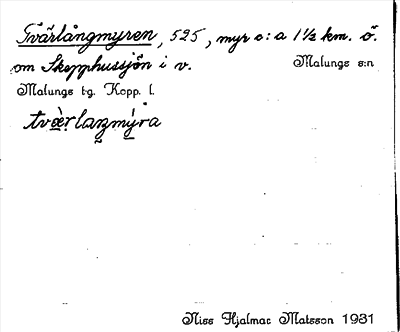 Tvärlångmyren, 525, myr c:a 1½ km. ö.
om Skepphussjön i v.
Malungs s:n
Malungs t:g. Kopp. l.
tvæ̀rlaŋmýra
Nils Hjalmar Matsson 1931